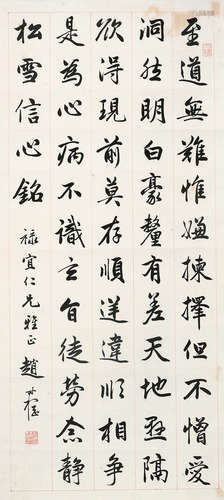 至道無難惟嫌揀擇但不憎愛
洞然明白豪釐有差天地懸隔
欲得現前莫存順逆違順相爭
是為心病不識玄旨徒勞念靜
松雪信心銘 祿宜仁兄雅正 趙